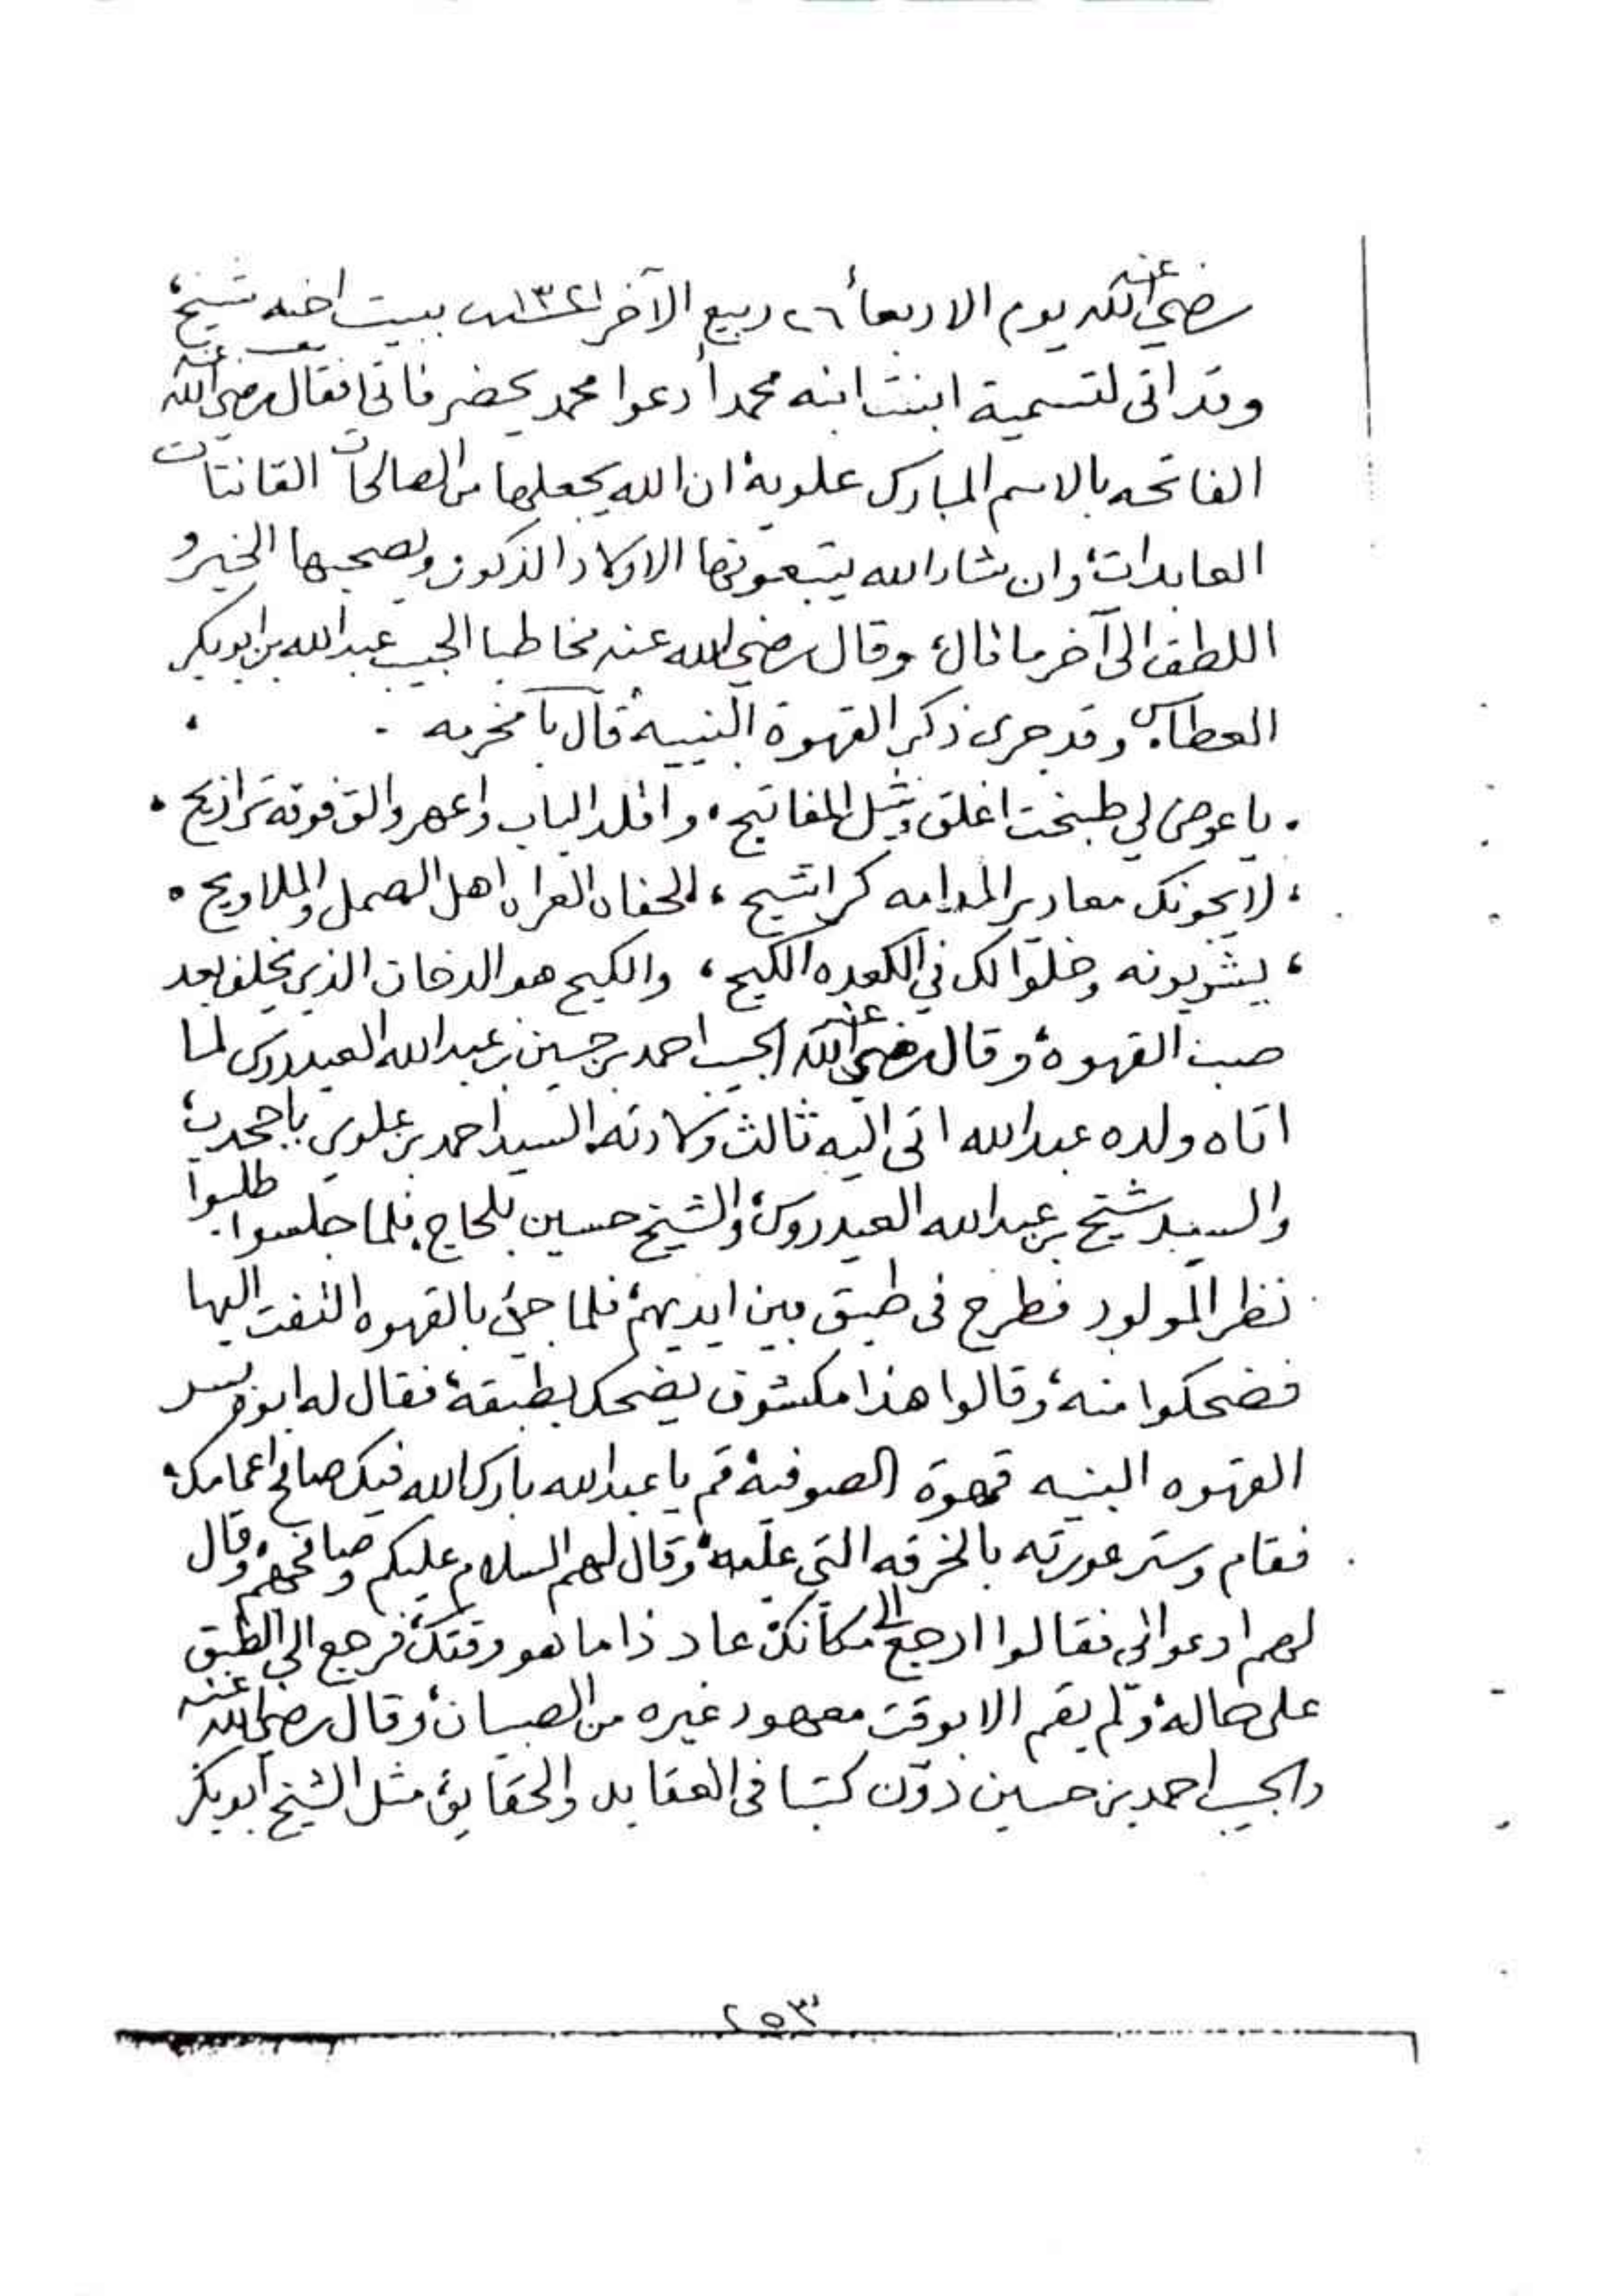 رضي الله عنه يوم الاربعاء ٢٦ ربيع الآخر ١٣٢١ ببيت اخيه شيخ،
وقد اتى لتسمية ابنت ابنه محمد أدعوا محمد يحضر فاتى فقال رضي الله عنه
الفاتحه بالاسم المبارك علوية، ان الله يجعلها من الصالحات القانتات
العابدات، وان شاء الله يتبعونها الاولاد الذكور ويصحبها الخير و
اللطف الى آخر ما قال، وقال رضي الله عنه مخاطبا الحبيب عبدالله بن ابوبكر
العطاس وقد جرى ذكر القهوة البنيه، قال با مخرمه .
. يا عوض لي طبخت اغلق وشل المفاتيح، واقلد الباب واعهر والق فوقه ترازيح .
، لا يجونك معادير المدامه كراشيح، الحفاه العراه اهل الصمل والملاويح .
، يشربونه وخلوا لك في الكعده الكيح، والكيح هو الدخان الذي يخلف بعد
صب القهوة، وقال رضي الله عنه الحبيب احمد بن حسين بن عبدالله العيدروس لما
اتاه ولده عبدالله اتى اليه ثالث ولادته السيد احمد بن علوي باجحدب،
والسيد شيخ بن عبدالله العيدروس، والشيخ حسين بلحاج، فلما جلسوا طلبوا
نظر المولود فطرح في طبق بين ايديهم، فلما جئ بالقهوه التفت اليها
فضحكوا منه، وقالوا هذا مكشوف يضحك بطبقه، فقال له ابوه
القهوه البنيه قهوة الصوفيه، قم يا عبدالله بارك الله فيك صافح اعمامك،
فقام وستر عورته بالخرقه التي عليه، وقال لهم السلام عليكم وصافحهم، وقال
لهم ادعوا لي فقالوا ارجع الى مكانك، عاد ذا ما هو وقتك، فرجع الى الطبق
على حاله، ولم يقم الا بوقت معهود غيره من الصبيان، وقال رضي الله عنه
والحبيب احمد بن حسين دوّن كتبا في العقايد والحقايق مثل الشيخ ابوبكر
٢٥٣